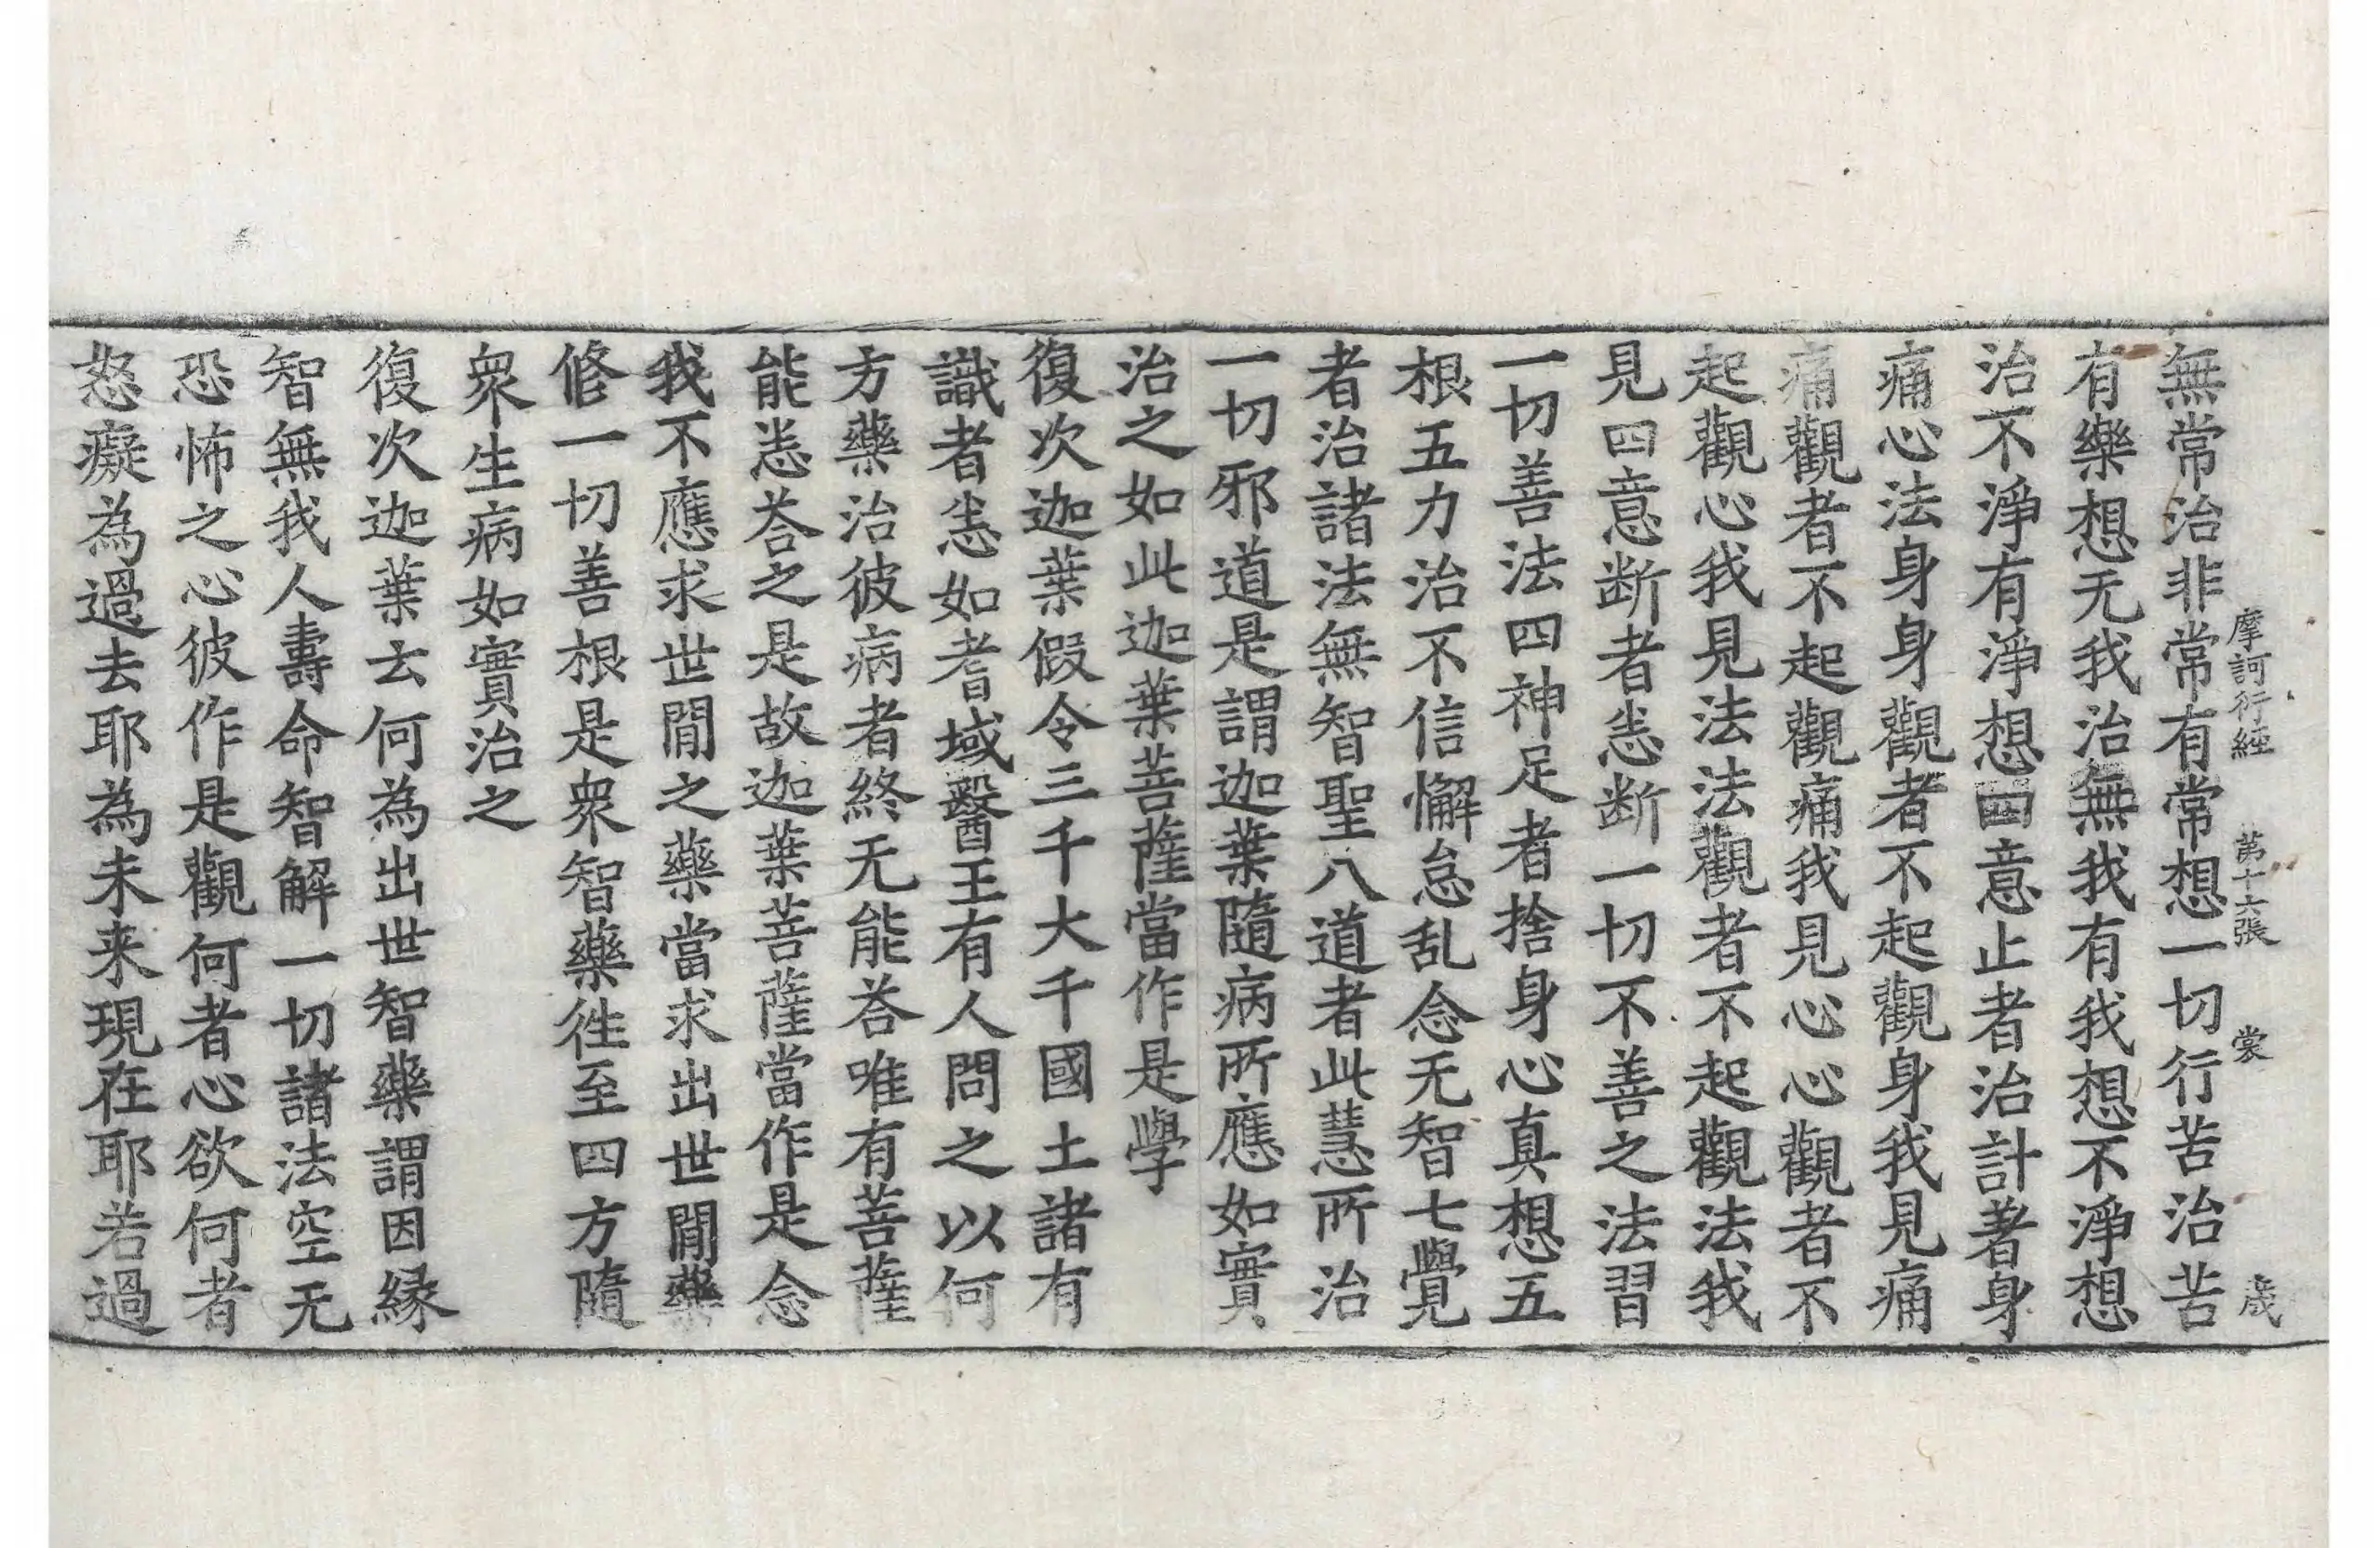 摩訶衍經　第十六張　裳　歲
無常治非常有常想一切行苦治苦
有樂想无我治無我有我想不淨想
治不淨有淨想四意止者治計著身
痛心法身身觀者不起觀身我見痛
痛觀者不起觀痛我見心心觀者不
起觀心我見法法觀者不起觀法我
見四意断者恙断一切不善之法習
一切善法四神足者捨身心真想五
根五力治不信懈怠乱念无智七覺
者治諸法無智聖八道者此慧所治
一切邪道是謂迦葉隨病所應如實
治之如此迦葉菩薩當作是學
復次迦葉假令三千大千國土諸有
識者恙如耆域醫王有人問之以何
方藥治彼病者終无能荅唯有菩薩
能恙荅之是故迦葉菩薩當作是念
我不應求世閒之藥當求出世閒藥
修一切善根是衆智藥徃至四方隨
衆生病如實治之
復次迦葉云何為出世智藥謂因緣
智無我人壽命智解一切諸法空无
恐怖之心彼作是觀何者心欲何者
怒癡為過去耶為未来現在耶若過